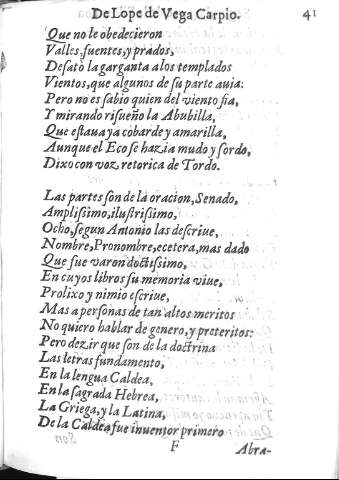 De Lope de Vega Carpio. 41
Que no le obedecieron
Valles, fuentes, y prados,
Desatò la garganta a los templados
Vientos, que algunos de su parte auia:
Pero no es sabio quien del viento fia,
Y mirando risueño la Abubilla,
Que estaua ya cobarde y amarilla,
Aunque el Eco se hazia mudo y sordo,
Dixo con voz retorica de Tordo.
Las partes son de la oracion, Senado,
Amplissimo, ilustrissimo,
Ocho, segun Antonio las descriue,
Nombre, Pronombre, ecetera, mas dado
Que fue varon doctissimo,
En cuyos libros su memoria viue,
Prolixo y nimio escriue,
Mas a personas de tan altos meritos
No quiero hablar de genero, y preteritos:
Pero dezir que son de la doctrina
Las letras fundamento,
En la lengua Caldea,
En la sagrada Hebrea,
La Griega, y la Latina,
De la Caldea fue inuentor primero
F Abra-